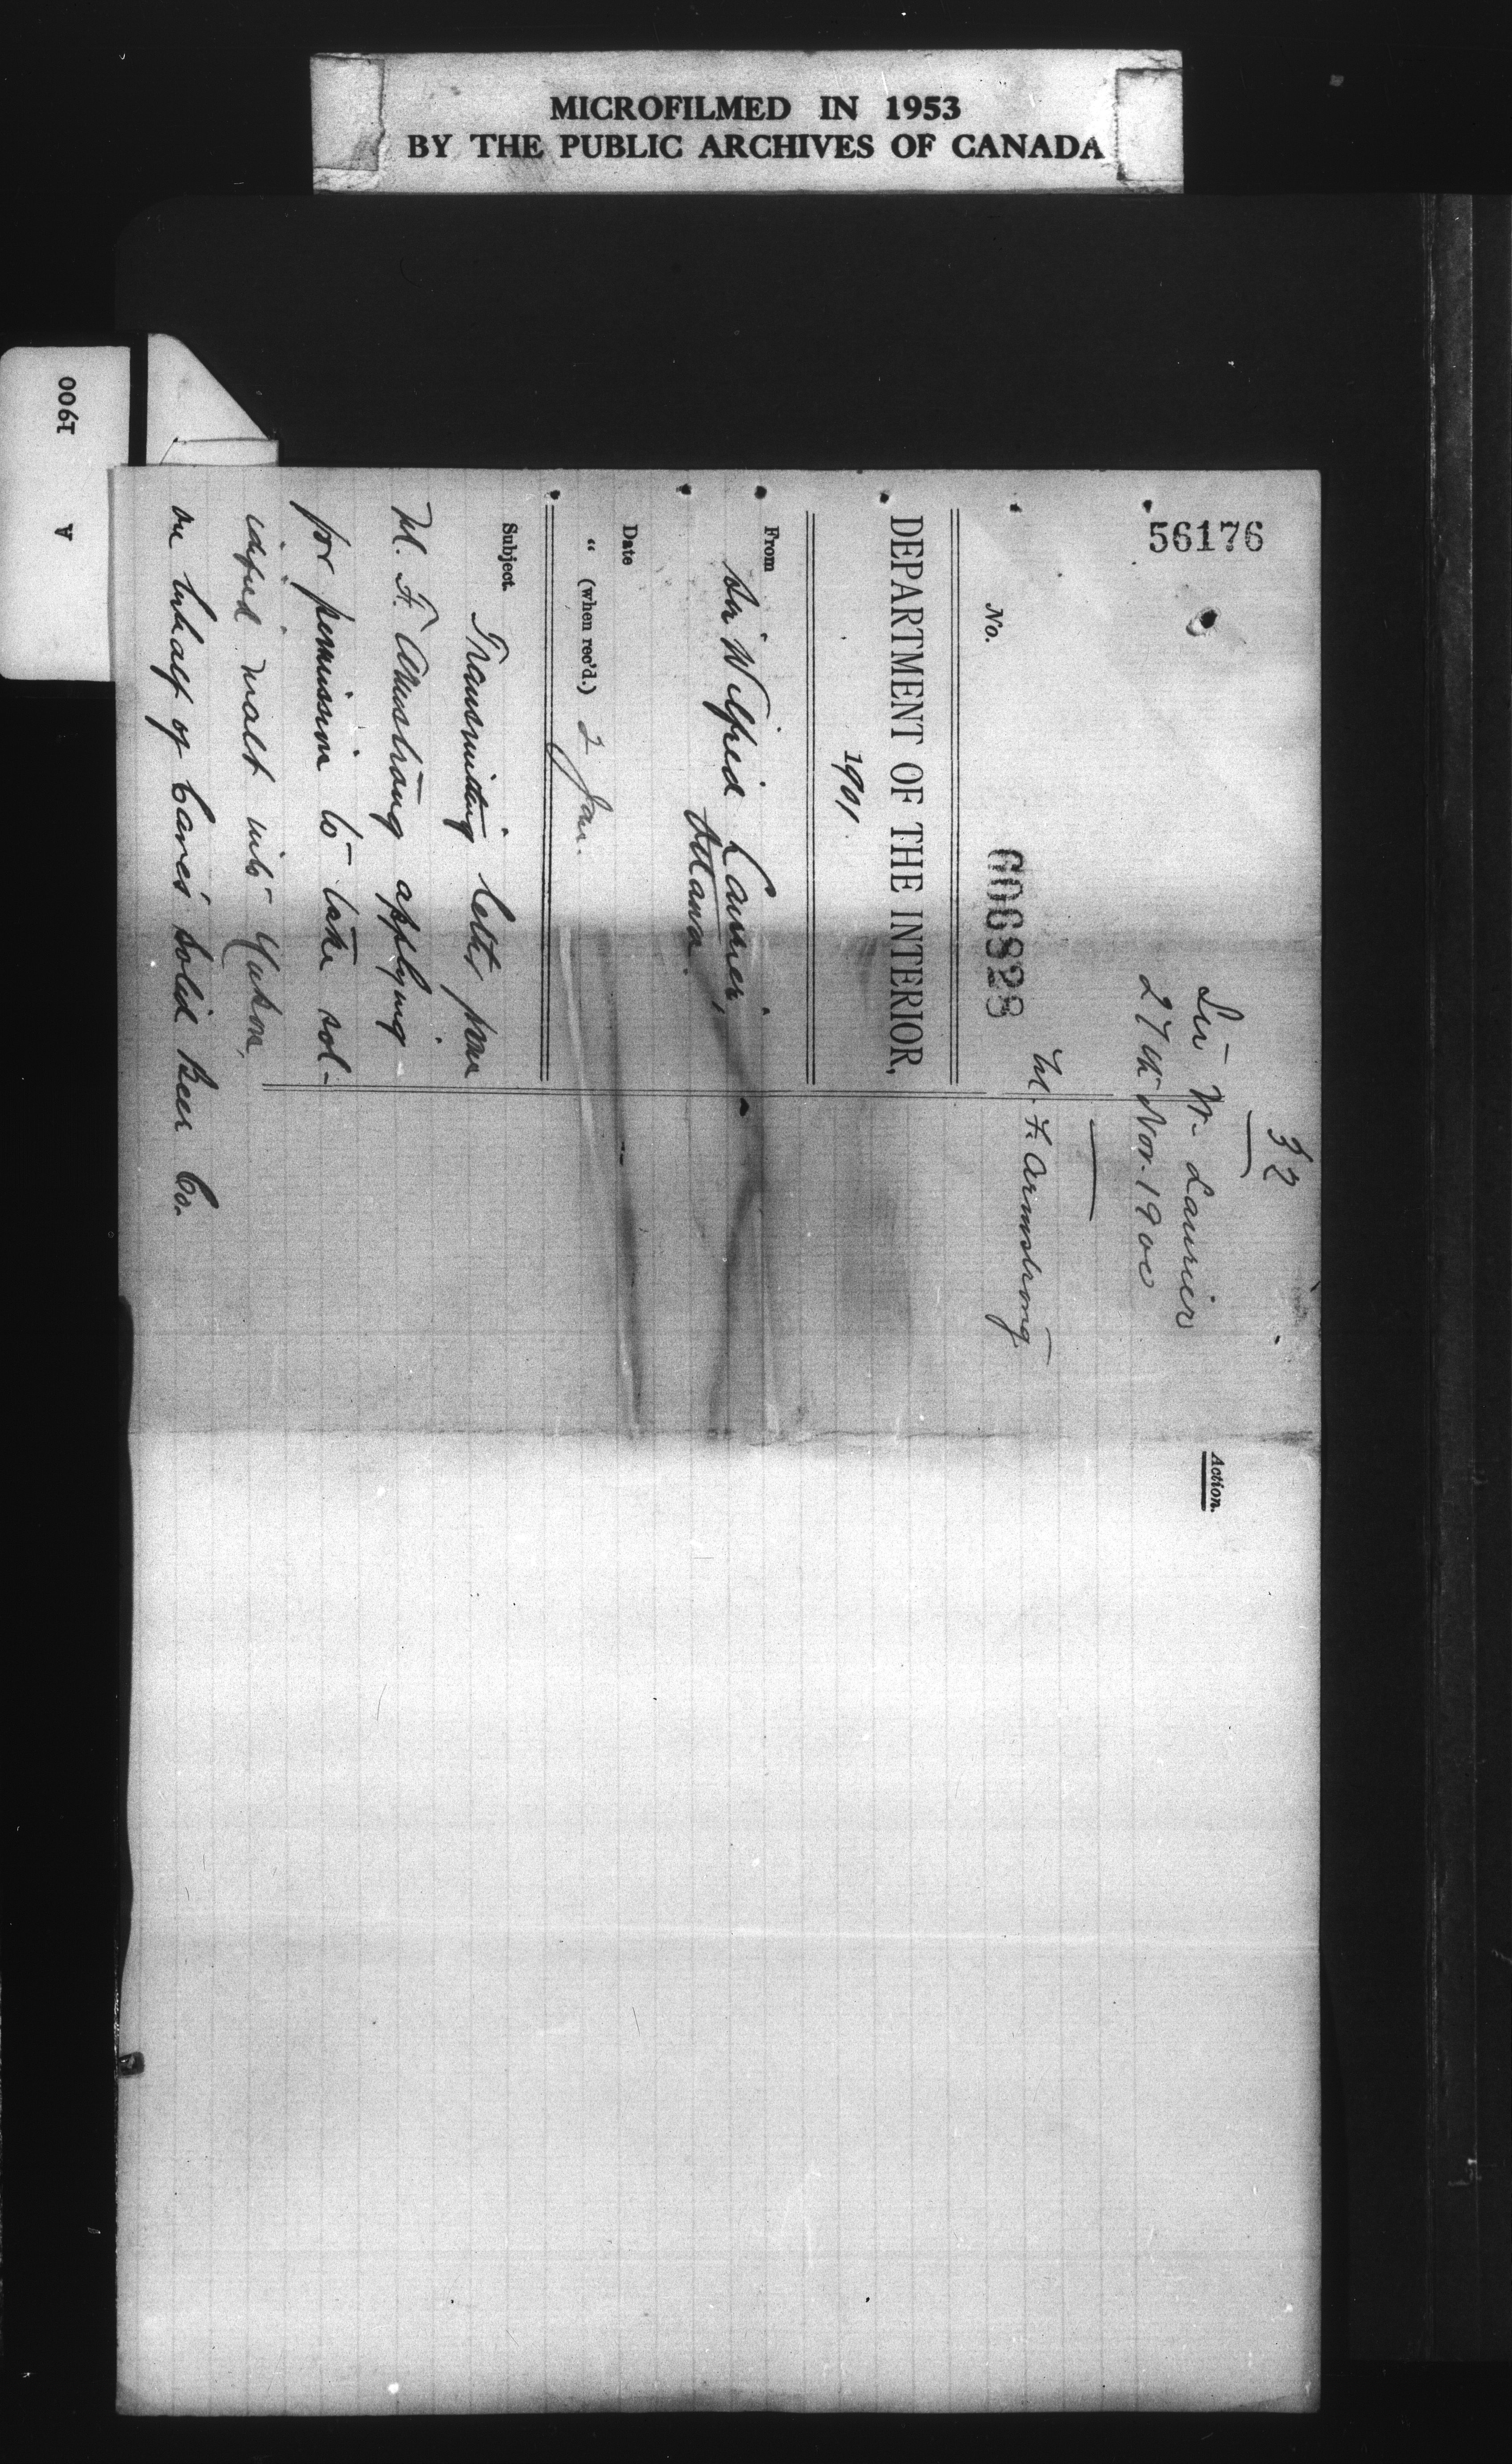 MICROFILMED IN 1953
BY THE PUBLIC ARCHIVES OF CANADA
1900 A
56176
32
Sir W. Laurier
27th Nov. 1900
M. F. Armstrong
No. 606828
DEPARTMENT OF THE INTERIOR,
1901.
From Sir Wilfrid Laurier,
Ottawa.
Date
" (when rec'd.) 2 Jan.
Subject. Transmitting letter from
M. F. Armstrong applying
for permission to take sol-
idified malt into Yukon,
on behalf of Solid Beer Co.
Action.